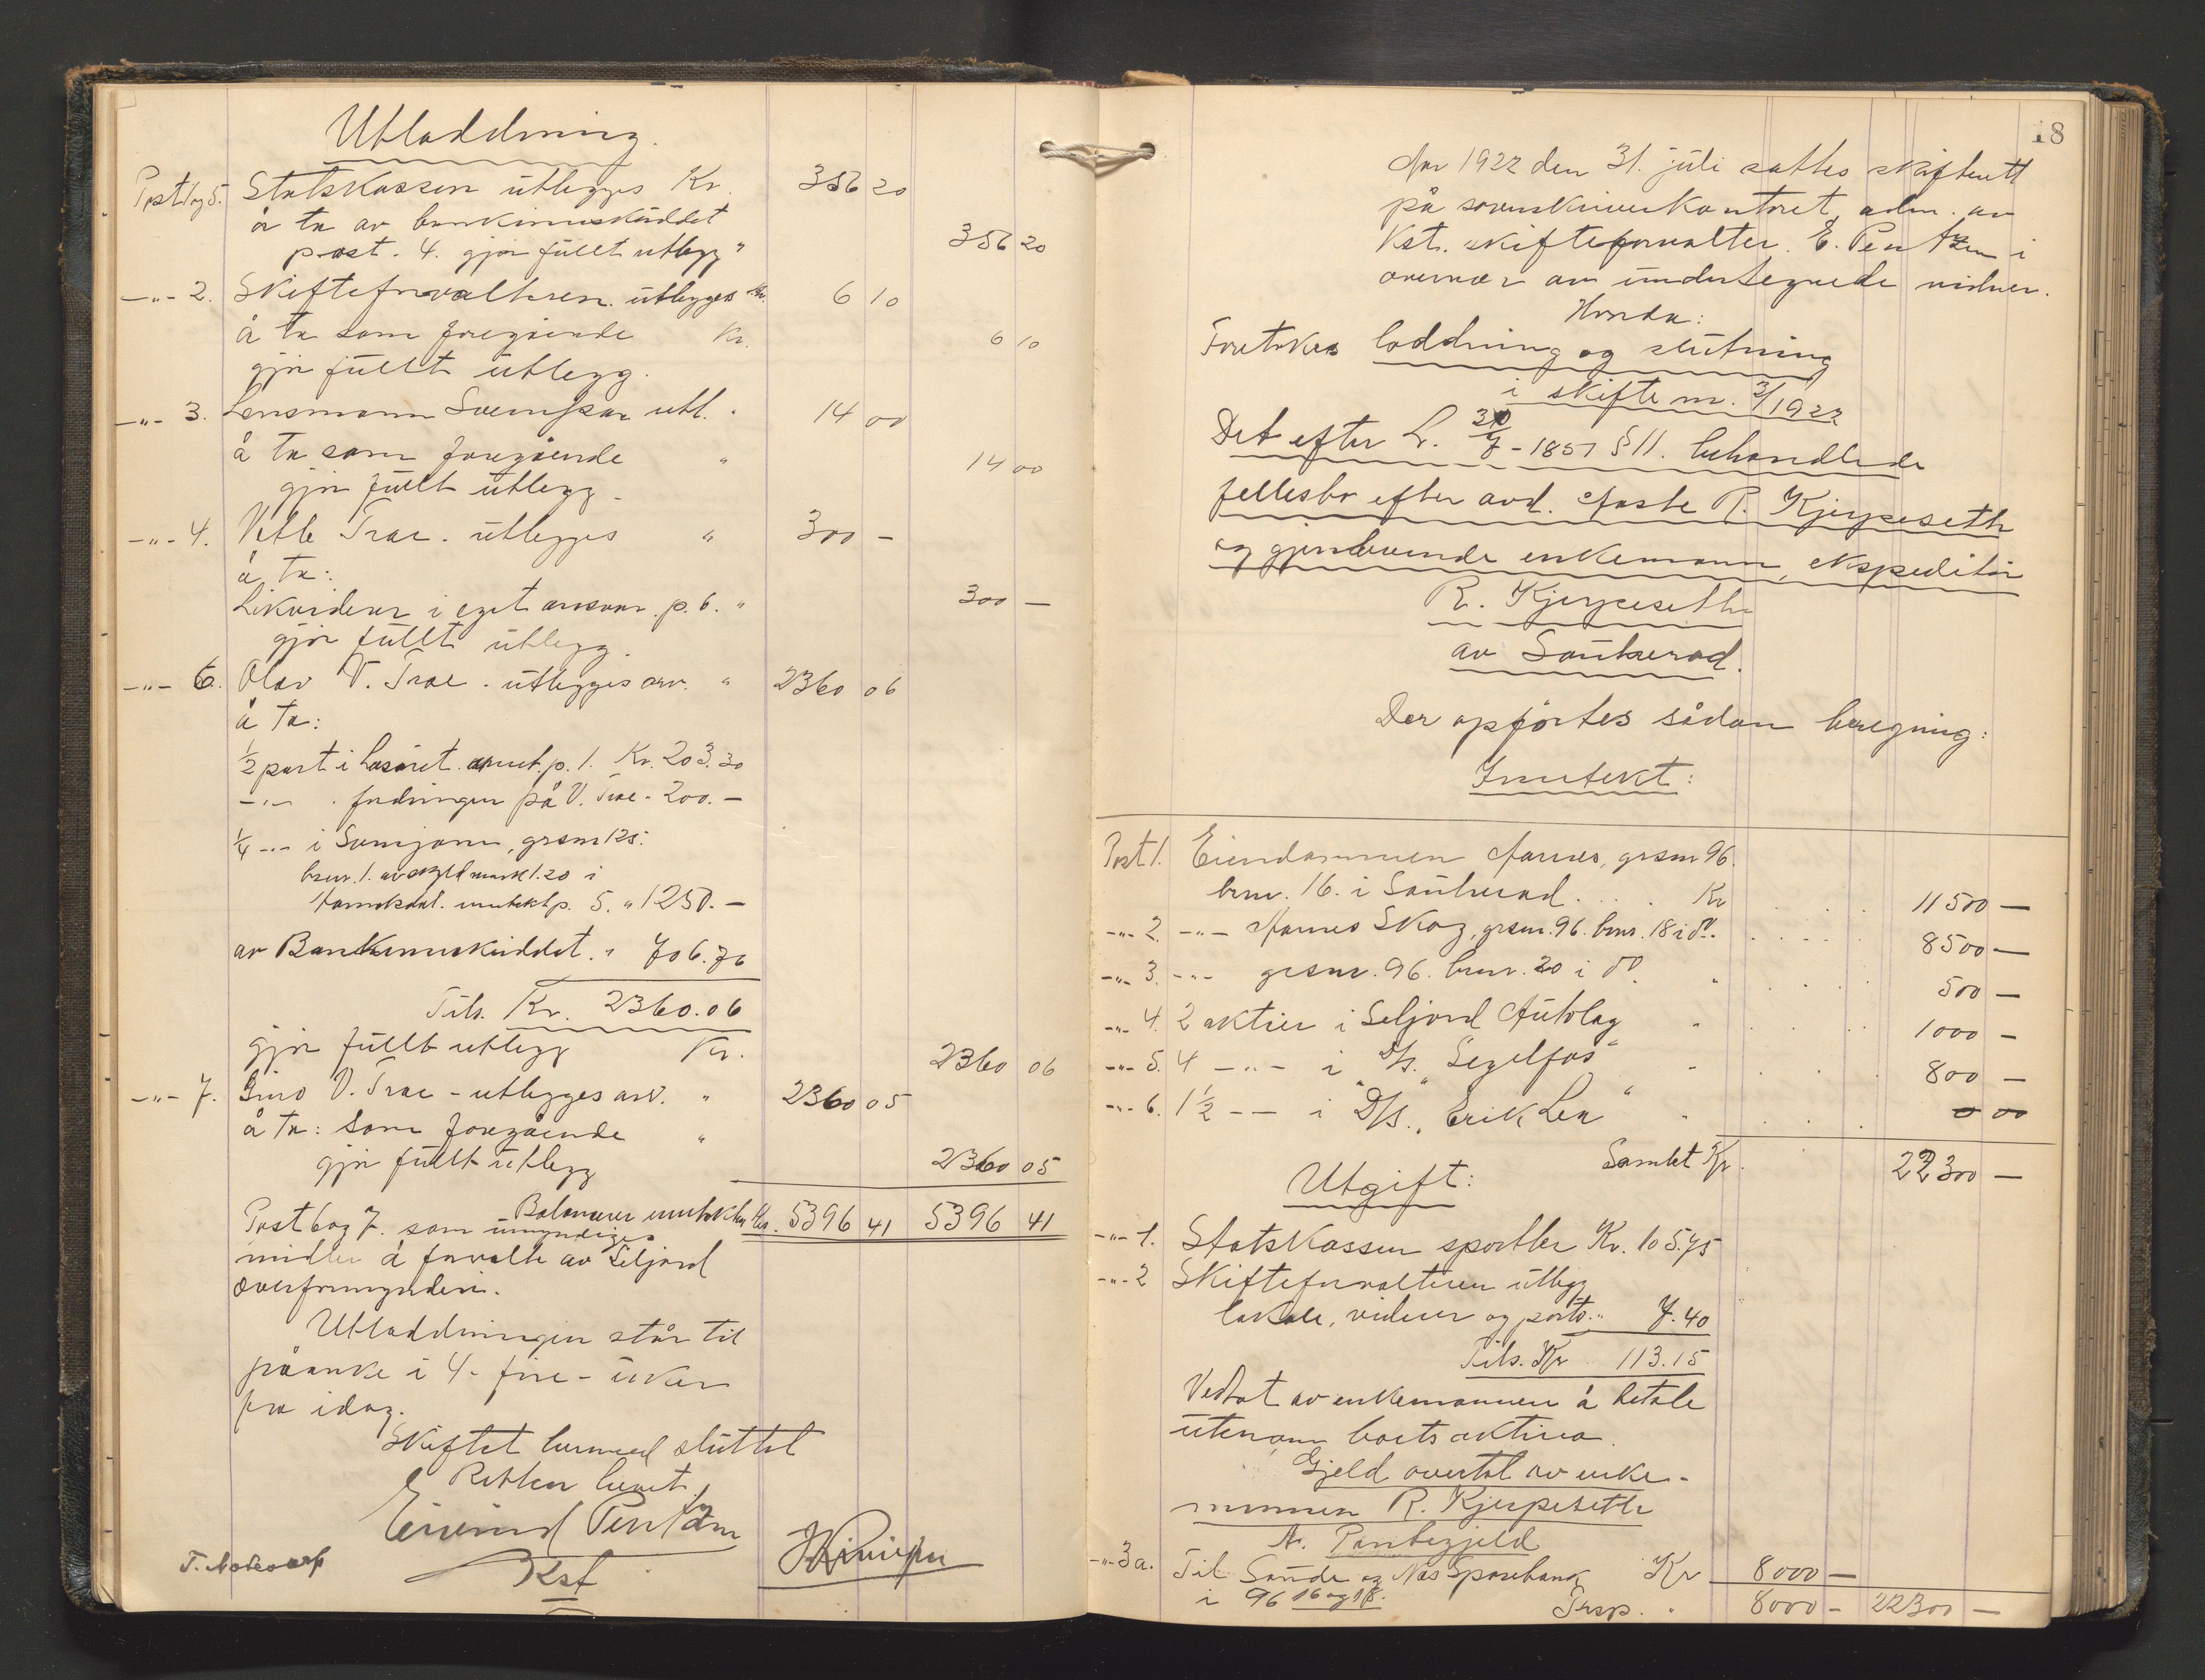 Utloddning.
Post 1 og 5. Statskassen utlegges Kr. 356 20
å ta av bankinnskuddet
post. 4. gjør fullt utlegg " 356 20
-"- 2. Skifteforvalteren utlegges Kr. 6 10
å ta som foregående Kr. 6 10
gjør fullt utlegg.
-"- 3. Lensmann utl. " 14 00
å ta som foregående " 14 00
gjør fullt utlegg.
-"- 4. Vetle Trae. utlegges " 300 -
å ta:
Likviderer i eget ansvar. p. 6. " 300 -
gjør fullt utlegg.
-"- 6. Olav V. Trae - utlegges arv. " 2360 06
å ta:
1/2 part i Løsøret p. 1. Kr. 203.30
-"- . fordringen på V. Trae - 200.-
1/4 -"- i grsnr 125.
brnr. 1. av skyld mark 1.20 i
inntekt p. 5. " 1250.-
av Bankinnskuddet. " 706.76
Tils. Kr. 2360.06
gjør fullt utlegg Kr. 2360 06
-"- 7. Gino V. Trae - utlegges arv. " 2360 05
å ta: Som foregående "
gjør fullt utlegg 2360 05
Balanserer inntekten Kr. 5396 41 5396 41
Post 6 og 7. som umyndiges
midler å forvalte av Seljord
overformynderi.
Utloddningen står til
påanke i 4 - fire - uker
fra idag.
Skiftet hermed sluttet
Retten hevet.
Eivind
Kst
18
År 1922 den 31. juli sattes skifterett
på sorenskriverkontoret, adm. av
Kst. skifteforvalter E. i
overvær av undertegnede vidner.
Hvorda:
Foretokes loddning og slutning
i skifte nr. 3/1922
Det efter L. 30/7 - 1851 § 11. behandlede
fellesbo efter avd. Aaste R. Kjerpeseth
og gjenlevende enkemann, ekspeditør
R. Kjerpeseth
av Sauherad.
Der opførtes sådan beregning:
Inntekt:
Post 1. Eiendommen Aarnes, grsnr 96.
brnr. 16. i Sauherad. . . . Kr 11500 -
-"- 2. -"- Aarnes Skog, grsnr. 96. brnr. 18 i do. 8500 -
-"- 3. -"- grsnr. 96. brnr. 20 i do. " 500 -
-"- 4. 2 aktier i Seljord Autolag " 1000 -
-"- 5. 4 -"- i D/S. "Segelfos" " 800 -
-"- 6. 1 1/2 -"- i D/S. "Erik Lea" " 0 00
Samlet Kr. 22300 -
Utgift:
-"- 1. Statskassen sportler Kr. 105.75
-"- 2 Skifteforvalteren utlegg
lokale, vidner og porto " 7.40
Tils. Kr. 113.15
Vedtat av enkemannen å betale
utenom boets aktiva.
Gjeld overtat av enke-
mannen R. Kjerpeseth
A. Pantegjeld
-"- 3a. Til Saude og Nes Sparebank Kr 8000 -
i 96 16 og 18. Trsp. . " 8000 - 22300 -